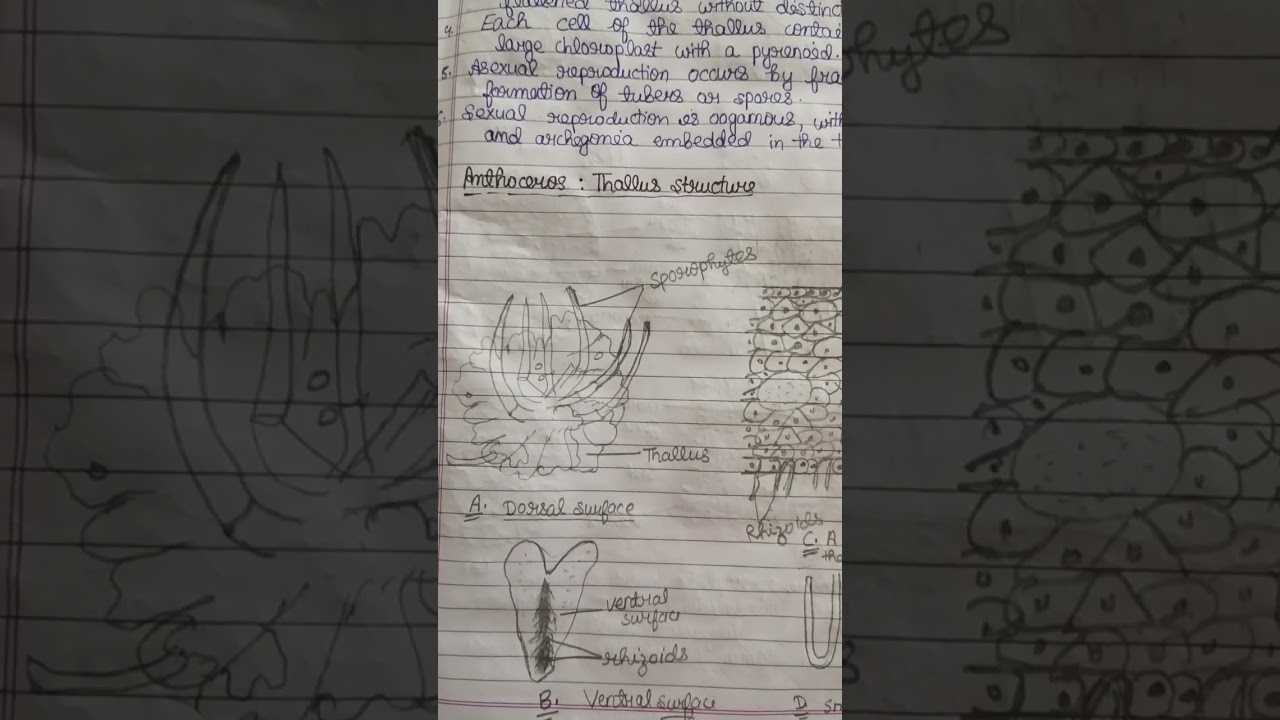 flattened thallus without distinc
4. Each cell of the thallus contai
large chloroplast with a pyrenoid.
5. Asexual reproduction occurs by fra
formation of tubers or spores.
Sexual reproduction is oogamous, with
and archegonia embedded in the t
Anthoceros : Thallus structure
sporophytes
Thallus
A. Dorsal surface
Rhizoids
C. A
tha
ventral
surface
rhizoids
B. Ventral surface
D. sm
phytes